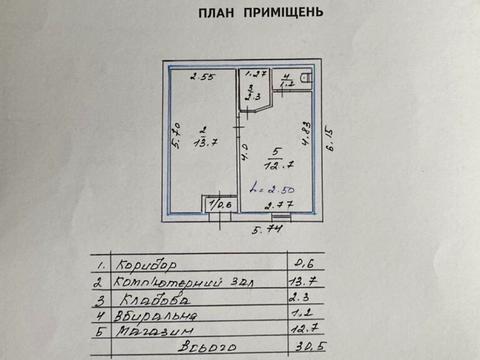 ПЛАН ПРИМІЩЕНЬ
2.55
1.27
4
1.2
3
2.3
5.70
2
13.7
4.0
5
12.7
4.83
6.15
h=2.50
1/0,6
2.77
5.74
1. Коридор 0,6
2 Комп'ютерний зал 13.7
3 Кладова 2.3
4 Вбиральна 1.2
5 Магазин 12.7
Всього 30,5